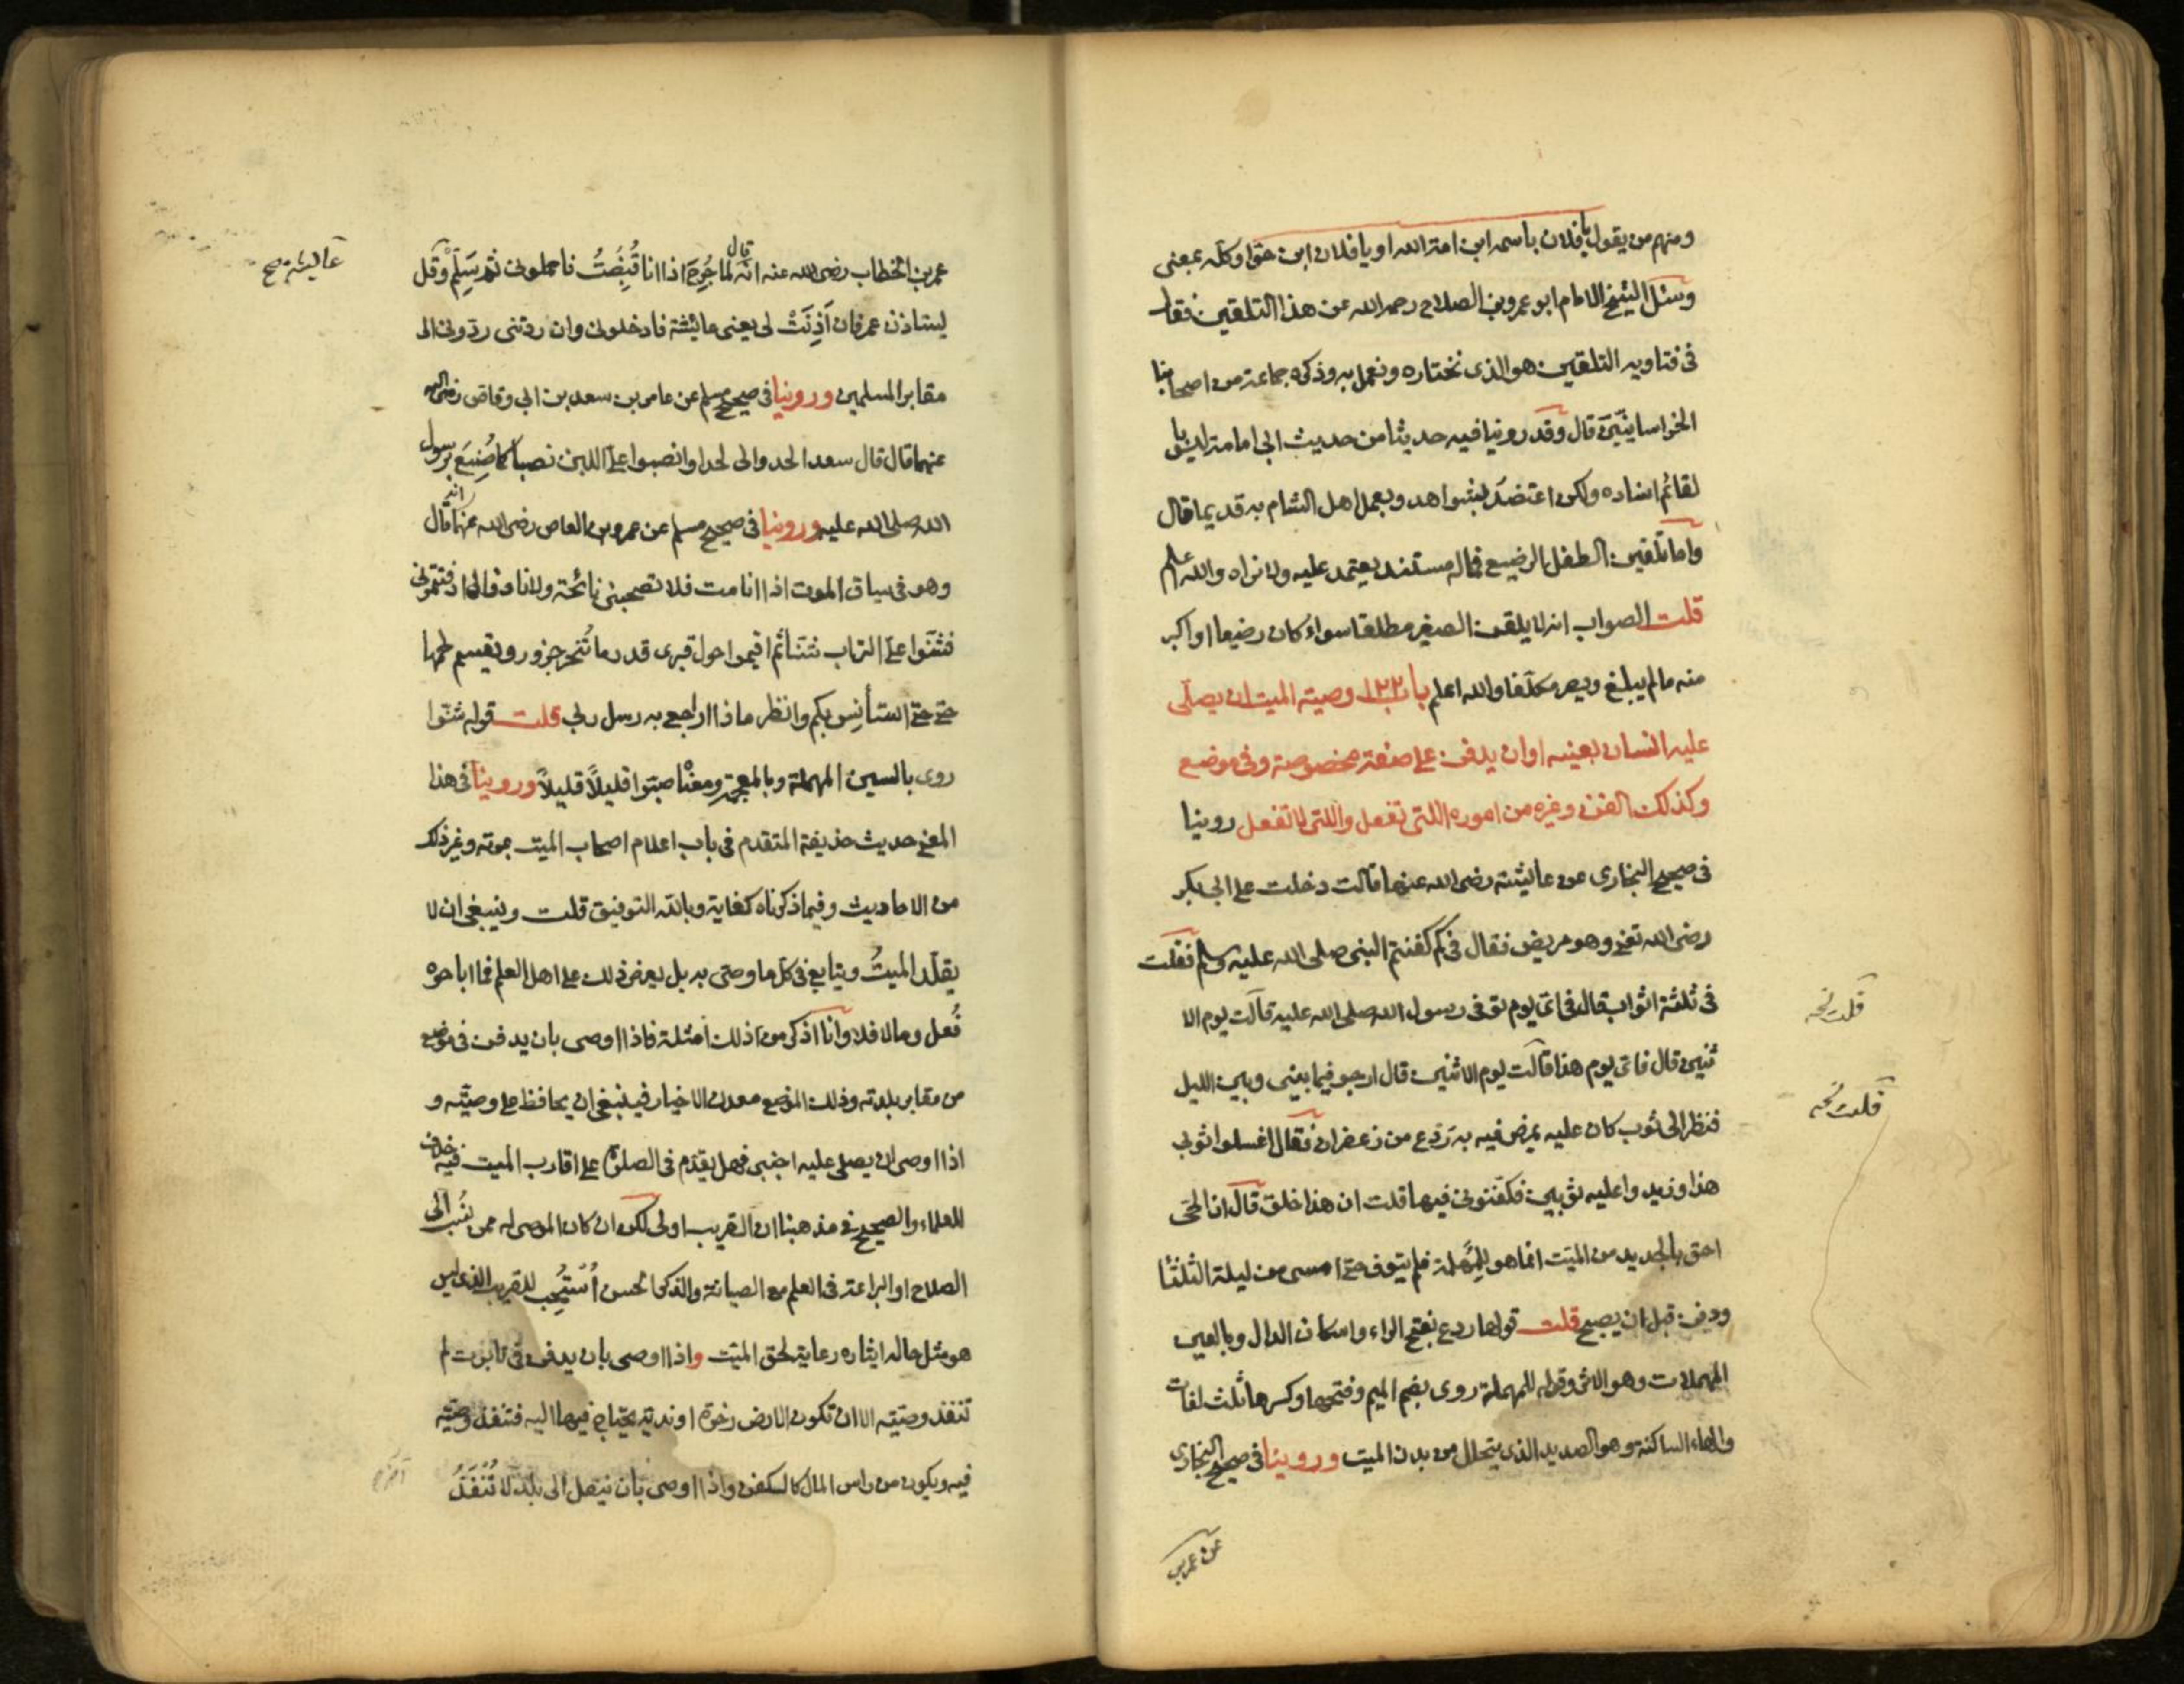 ومنهم من يقول يا فلان باسمه ابن امة الله او يا فلان ابن حوّا وكله بمعنى
وسئل الشيخ الامام ابو عمرو بن الصلاح رحمه الله عن هذا التلقين فقال
فى فتاويه التلقين هو الذى نختاره ونعمل به وذكره جماعة من اصحابنا
الخراسانيين قال وقد روينا فيه حديثا من حديث ابى امامة ليس با
لقائم اسناده ولكن اعتضد بشواهد وبعمل اهل الشام به قديما قال
واما تلقين الطفل الرضيع فماله مستند يعتمد عليه ولا نراه والله اعلم
قلت الصواب انه لا يلقن الصغير مطلقا سواء كان رضيعا او اكبر
منه ما لم يبلغ ويصر مكلفا والله اعلم باب ١٢٢ وصية الميت ان يصلى
عليه انسان بعينه او ان يدفن على صفة مخصوصة وفى موضع
وكذلك الكفن وغيره من اموره اللتى تفعل واللتى لا تفعل روينا
فى صحيح البخارى عن عائيشة رضى الله عنها قالت دخلت على ابى بكر
رضى الله تع وهو مريض فقال فى كم كفنتم النبى صلى الله عليه وسلم فقلت
فى ثلثة اثواب قال فى اى يوم توفى رسول الله صلى الله عليه قالت يوم الا
ثنين قال فاى يوم هذا قالت يوم الاثنين قال ارجو فيما بينى وبين الليل
فنظر الى ثوب كان عليه يمرض فيه به ردع من زعفران فقال اغسلوا ثوبى
هذا وزيدوا عليه ثوبين فكفنونى فيها قلت ان هذا خلق قال ان الحى
احق بالجديد من الميت انما هو للمهلة فلم يتوف حتى امسى من ليلة الثلثا
ودفن قبل ان يصبح قلت قولها ردع بفتح الراء واسكان الدال وبالعين
المهملات وهو الاثر وقوله للمهلة روى بضم الميم وفتحها وكسرها ثلث لغات
والهاء الساكنة وهو الصديد الذى يتحلل من بدن الميت وروينا فى صحيح البخارى
عن عمر بن
قلت نخه
قلت نخه
عمر بن الخطاب رضى الله عنه انه قال لما جرح اذا انا قبضت فاحملونى ثم سلم وقل
يستاذن عمر فان اذنت لى يعنى عائشة فادخلونى وان ردتنى ردونى الى
مقابر المسلمين وروينا فى صحيح مسلم عن عامر بن سعد بن ابى وقاص رضى الله
عنهما قال قال سعد الحدوالى لحدا وانصبوا على اللبن نصبا كما صنع برسول
الله صلى الله عليه وروينا فى صحيح مسلم عن عمرو بن العاص رضى الله عنهما انه قال
وهو فى سياق الموت اذا انا مت فلا تصحبنى نائحة ولا نار فاذا دفنتمونى
فشنوا على التراب شنا ثم اقيموا حول قبرى قدر ما تنحر جزور ويقسم لحمها
حتى حتى استأنس بكم وانظر ماذا اراجع به رسل ربى قلت قوله شنوا
روى بالسين المهملة وبالمعجمة ومعناه صبوا قليلاً قليلاً وروينا فى هذا
المعنى حديث حذيفة المتقدم فى باب اعلام اصحاب الميت بموته وغير ذلك
من الاحاديث وفيما ذكرناه كفاية وبالله التوفيق قلت وينبغى ان لا
يقلد الميت ويتابع فى كل ما وصى به بل يعرض ذلك على اهل العلم فما اباحوه
فعل وما لا فلا وانا اذكر من ذلك امثلة فاذا اوصى بان يدفن فى موضع
من مقابر بلدته وذلك الموضع معدن الاخيار فينبغى ان يحافظ على وصيته و
اذا اوصى ان يصلى عليه اجنبى فهل يقدم فى الصلوة على اقارب الميت فيه خلاف
للعلماء والصحيح فى مذهبنا ان القريب اولى لكن ان كان الموصى له ممن ينسب الى
الصلاح او البراعة فى العلم مع الصيانة والذكر الحسن استحب للقريب الذى ليس
هو مثل حاله ايثاره رعاية لحق الميت واذا اوصى بان يدفن فى تابوت لم
تنفذ وصيته الا ان تكون الارض رخوة او ندية يحتاج فيها اليه فتنفذ وصيته
فيه ويكون من راس المال كالكفن واذا اوصى بأن ينقل الى بلد لا تنفذ
عائيشة صح